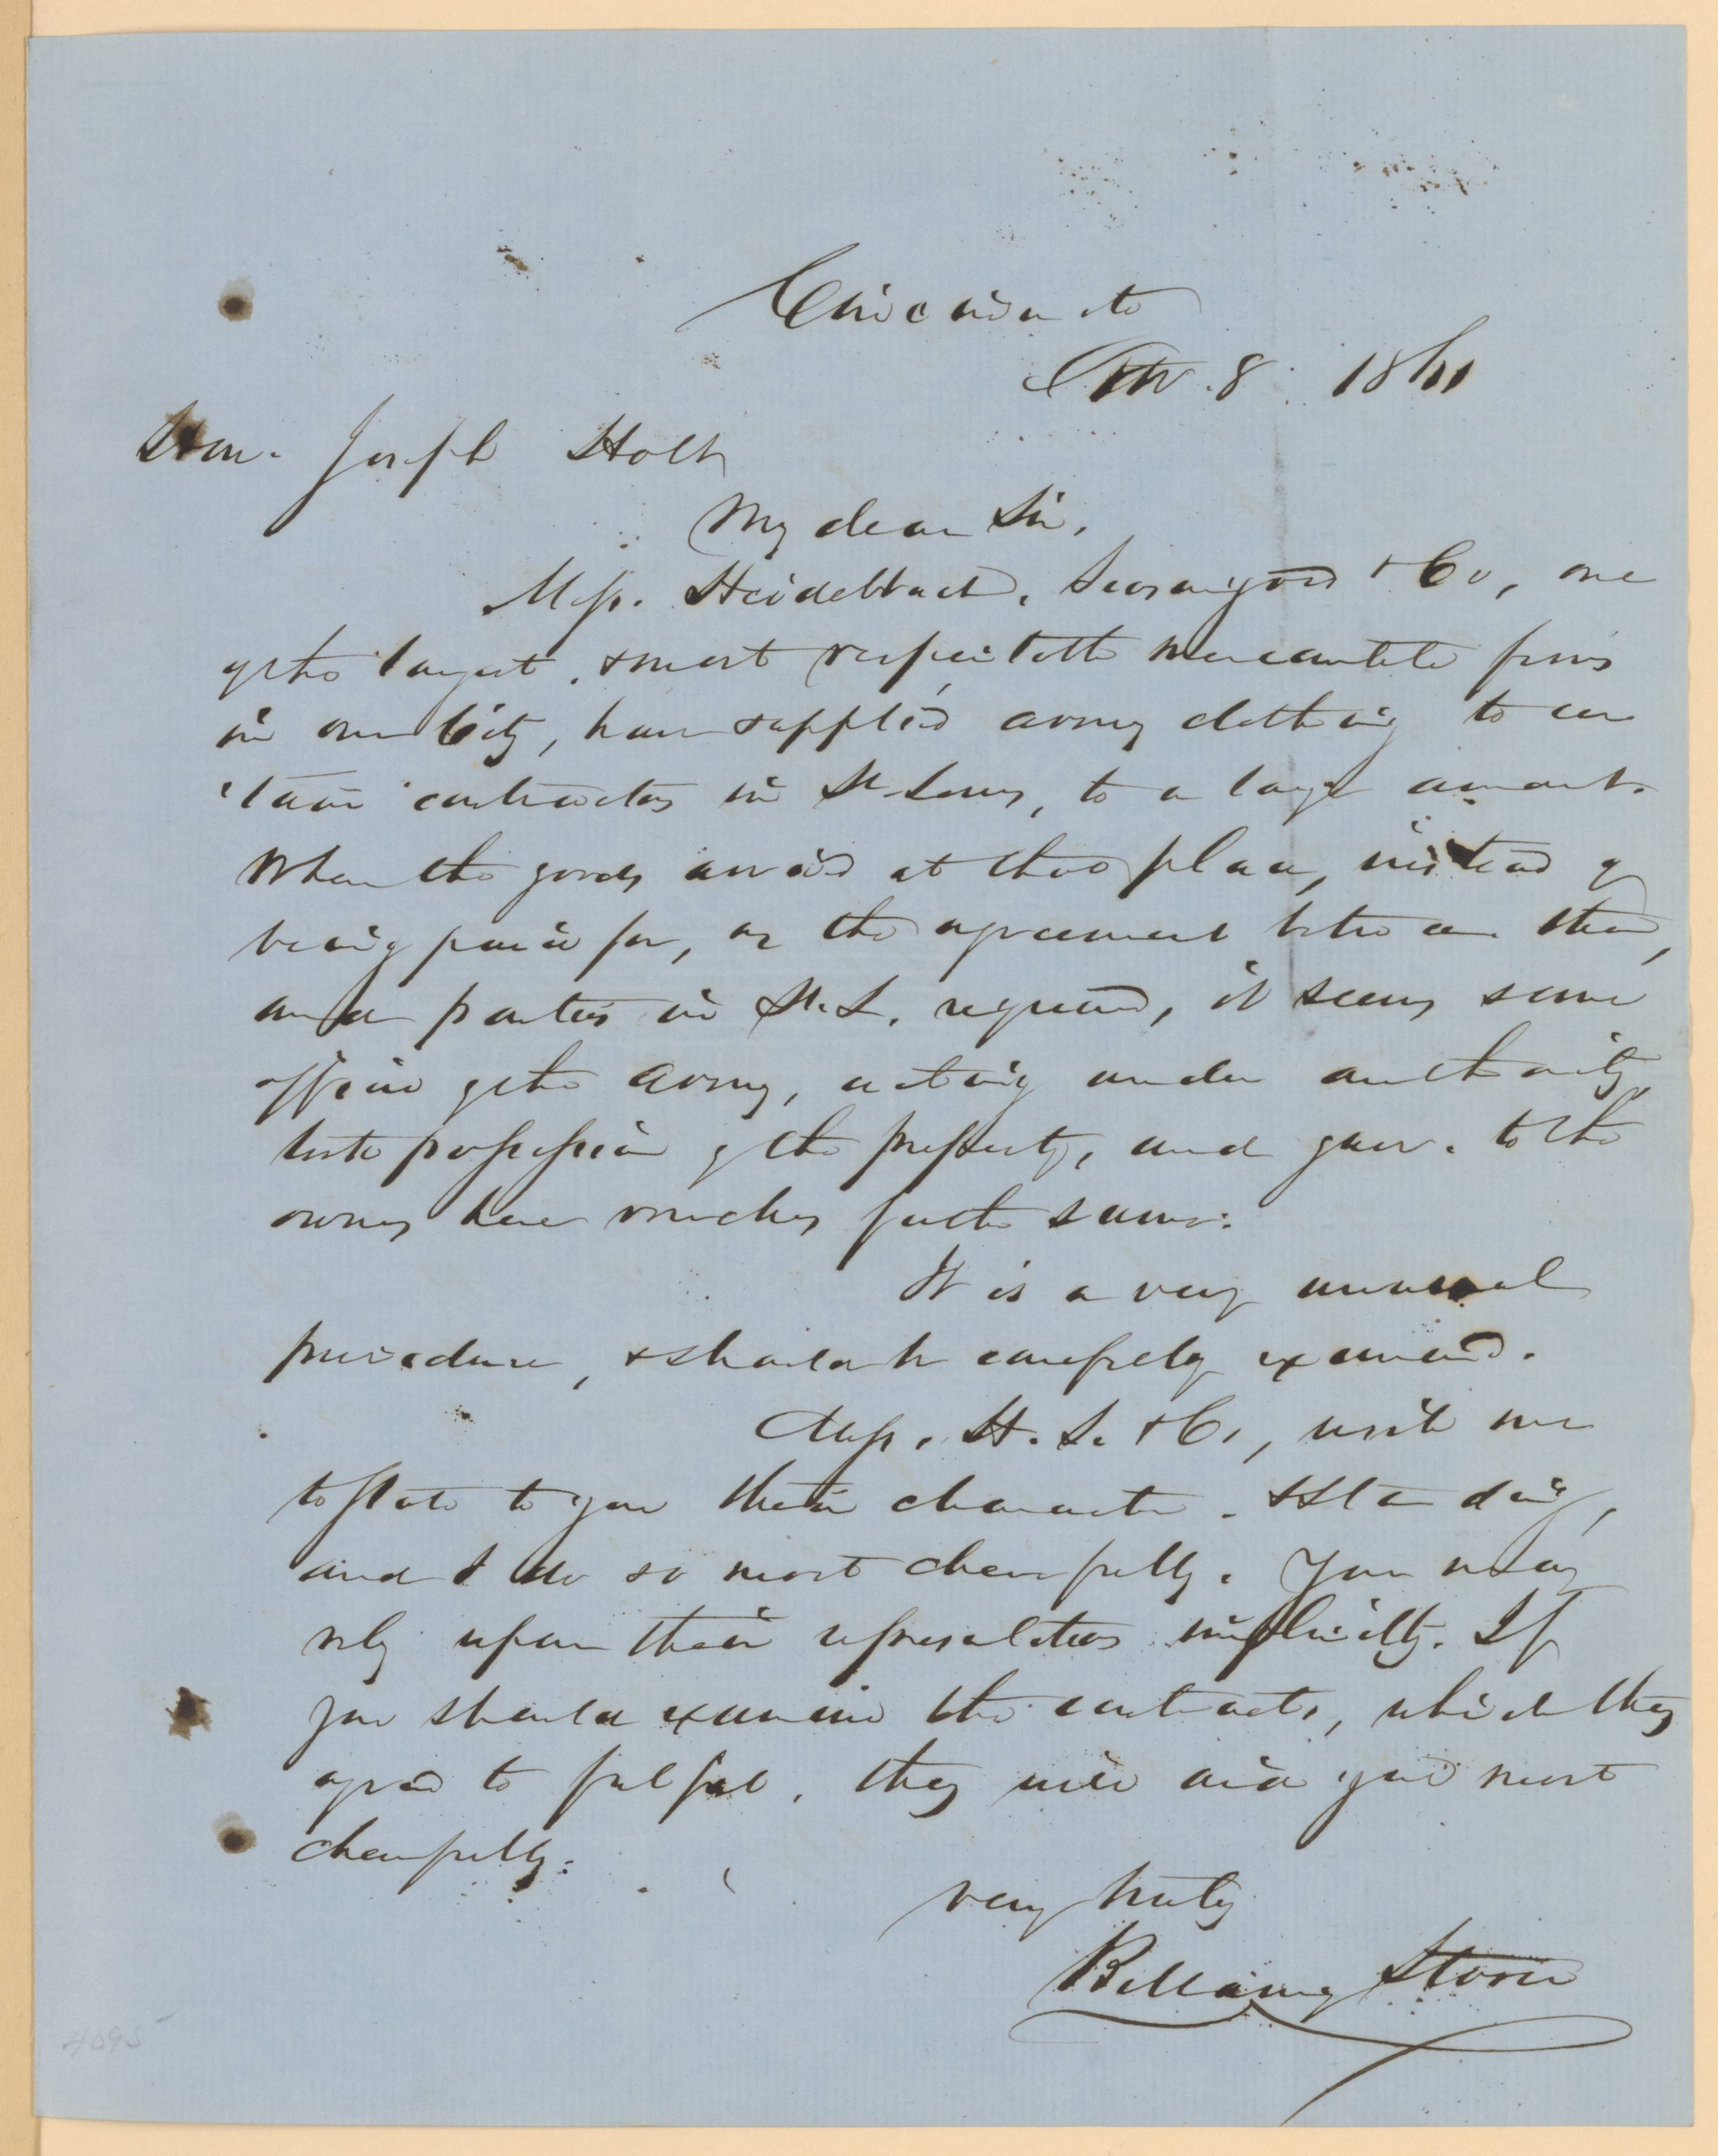 Cincinnati
Nov. 8. 1861
Hon. Joseph Holt
My dear Sir,
Mess. Heidelbach, Seasongood & Co, one
of the largest, & most respectable mercantile firms
in our City, have supplied army clothing to cer
tain contractors in St. Louis, to a large amount.
When the goods arrived at that place, instead of
being paid for, as the agreement between them,
and parties in St. L. required, it seems some
officer of the army, acting under authority,
took possession of the property, and gave to the
owners here vouchers for the same.
It is a very unusual
procedure, & should be carefully examined.
Mess. H. S. & Co, wish me
to state to you their character. & standing,
and I do so most cheerfully. You may
rely upon their representations implicitly. If
you should examine the contracts, which they
agreed to fulfil, they will aid you most
cheerfully.
very truly
Bellamy Storer
4095